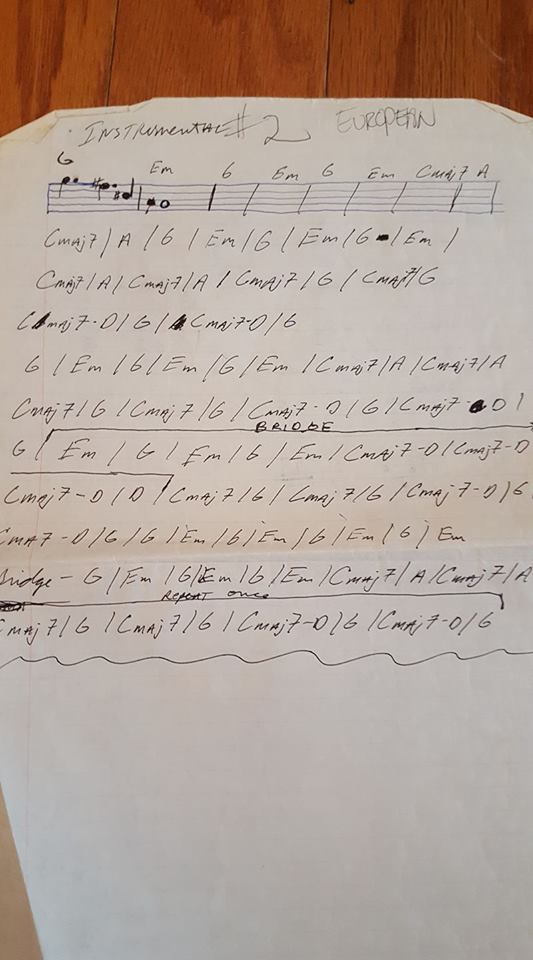 INSTRUMENTAL # 2 EUROPEAN
G Em G Em G Em Cmaj7 A
Cmaj7 / A / G / Em / G / Em / G / Em /
Cmaj7 / A / Cmaj7 / A / Cmaj7 / G / Cmaj7 / G
Cmaj7 - D / G / Cmaj7 - D / G
G / Em / G / Em / G / Em / Cmaj7 / A / Cmaj7 / A
Cmaj7 / G / Cmaj7 / G / Cmaj7 - D / G / Cmaj7 - D /
BRIDGE
G / Em / G / Em / G / Em / Cmaj7 - D / Cmaj7 - D
Cmaj7 - D / D / Cmaj7 / G / Cmaj7 / G / Cmaj7 - D / G
Cma7 - D / G / G / Em / G / Em / G / Em / G / Em
Bridge - G / Em / G / Em / G / Em / Cmaj7 / A / Cmaj7 / A
REPEAT once
Cmaj7 / G / Cmaj7 / G / Cmaj7 - D / G / Cmaj7 - D / G